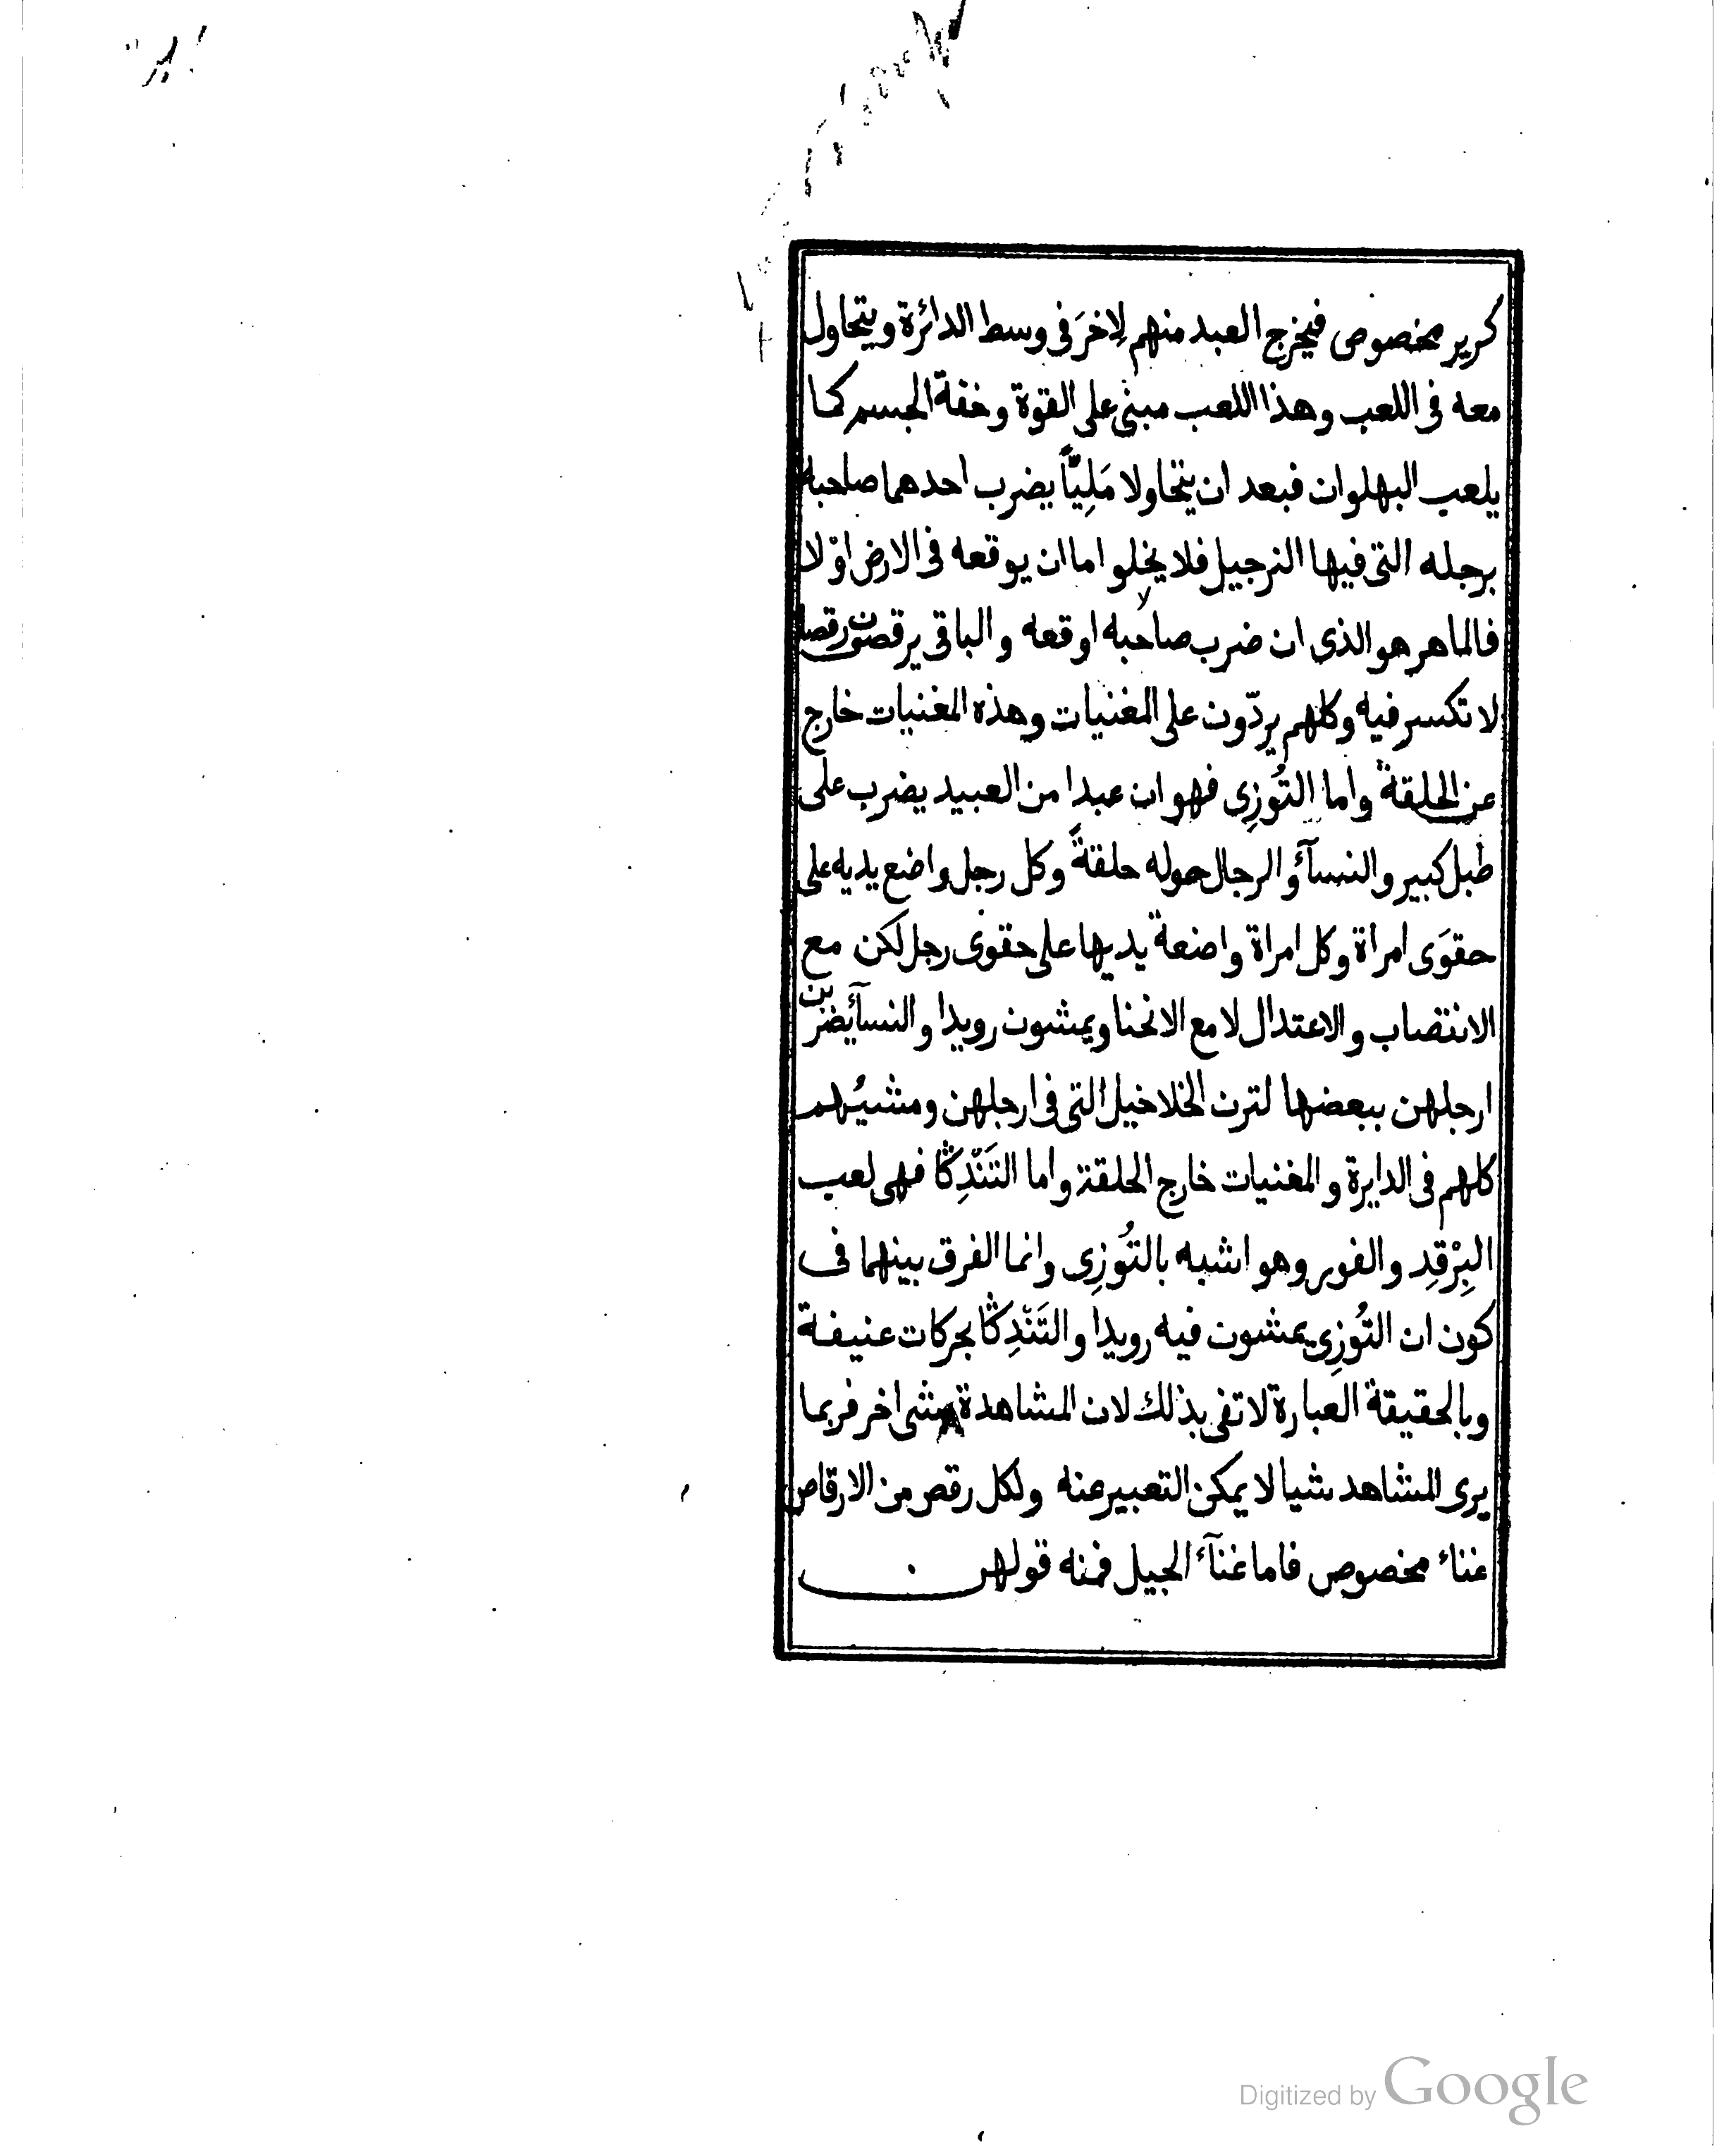 كرير مخصوص فيخرج العبد منهم لاِخرَ فى وسط الدائرة ويتحاول
معه فى اللعب وهذا اللعب مبنى على القوة وخفة الجسم كما
يلعب البهلوان فبعد ان يتحاولا مَلِيًّا يضرب احدهما صاحبه
برجله التى فيها النرجيل فلا يخلو اما ان يوقعه فى الارض اوْ لا
فالماهر هو الذى ان ضرب صاحبه اوقعه والباقى يرقصون رقصا
لا تكسر فيه وكلهم يردّون على المغنيات وهذه المغنيات خارج
عن الحلقة واما التُوزِى فهو ان عبدا من العبيد يضرب على
طبل كبير والنسآءُ والرجال حوله حلقةً وكل رجل واضع يديه على
حقوَى امراة وكل امراة واضعة يديها على حقوى رجل لكن مع
الانتصاب والاعتدال لا مع الانحنا ويمشون رويدا والنسآء يضربن
ارجلهن ببعضها لترن الخلاخيل التى فى ارجلهن ومشيُهم
كلهم فى الدايرة والمغنيات خارج الحلقة واما التَنْدِكَّا فهى لعب
البِرْقِد والفور وهو اشبه بالتُوزِى وانما الفرق بينهما فى
كون ان التُوزِى يمشون فيه رويدا والتَنْدِكَّا بحركات عنيفة
وبالحقيقة العبارة لا تفى بذلك لان المشاهدة شى اخر فربما
يرى المشاهد شيا لا يمكن التعبير عنه ولكل رقص من الارقاص
غناء مخصوص فاما غنآء الجيل فمنه قولهن
Digitized by Google